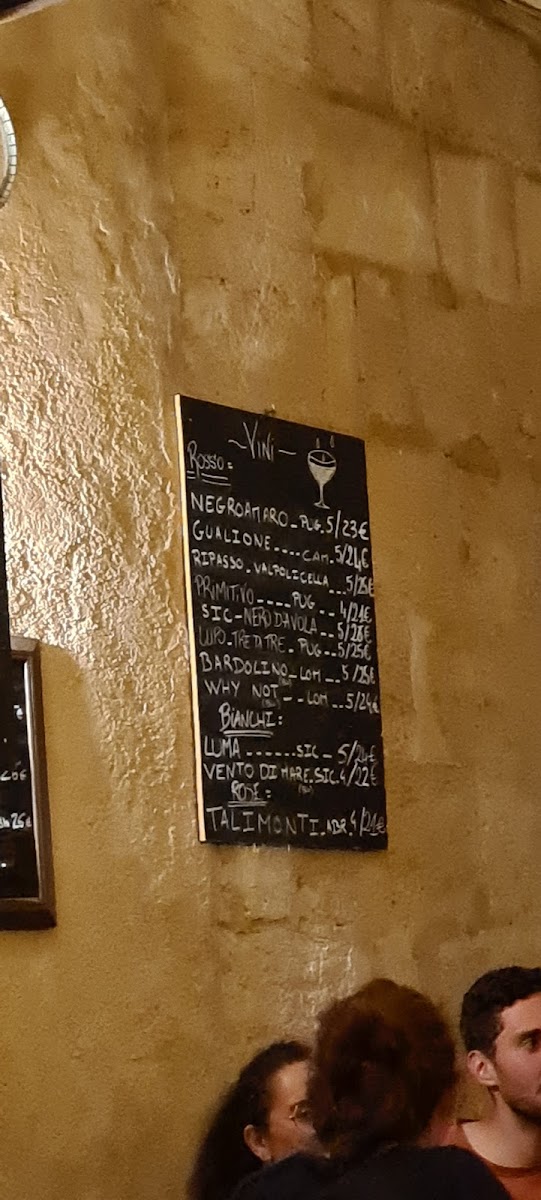 ~ Vini ~
Rosso:
NEGROAMARO - PUG. 5/23€
GUALIONE .... CAM. 5/24€
RIPASSO - VALPOLICELLA ... 5/25€
PRIMITIVO .... PUG ... 4/21€
SIC - NERO D'AVOLA ... 5/28€
LUPO - TRE DI TRE - PUG -- 5/25€
BARDOLINO - LOM -- 5/25€
WHY NOT - - LOM -- 5/24€
BIANCHI:
LUMA ...... SIC - 5/24€
VENTO DI MARE. SIC. 4/22€
ROSE:
TALIMONTI. ABR. 4/21€
25€